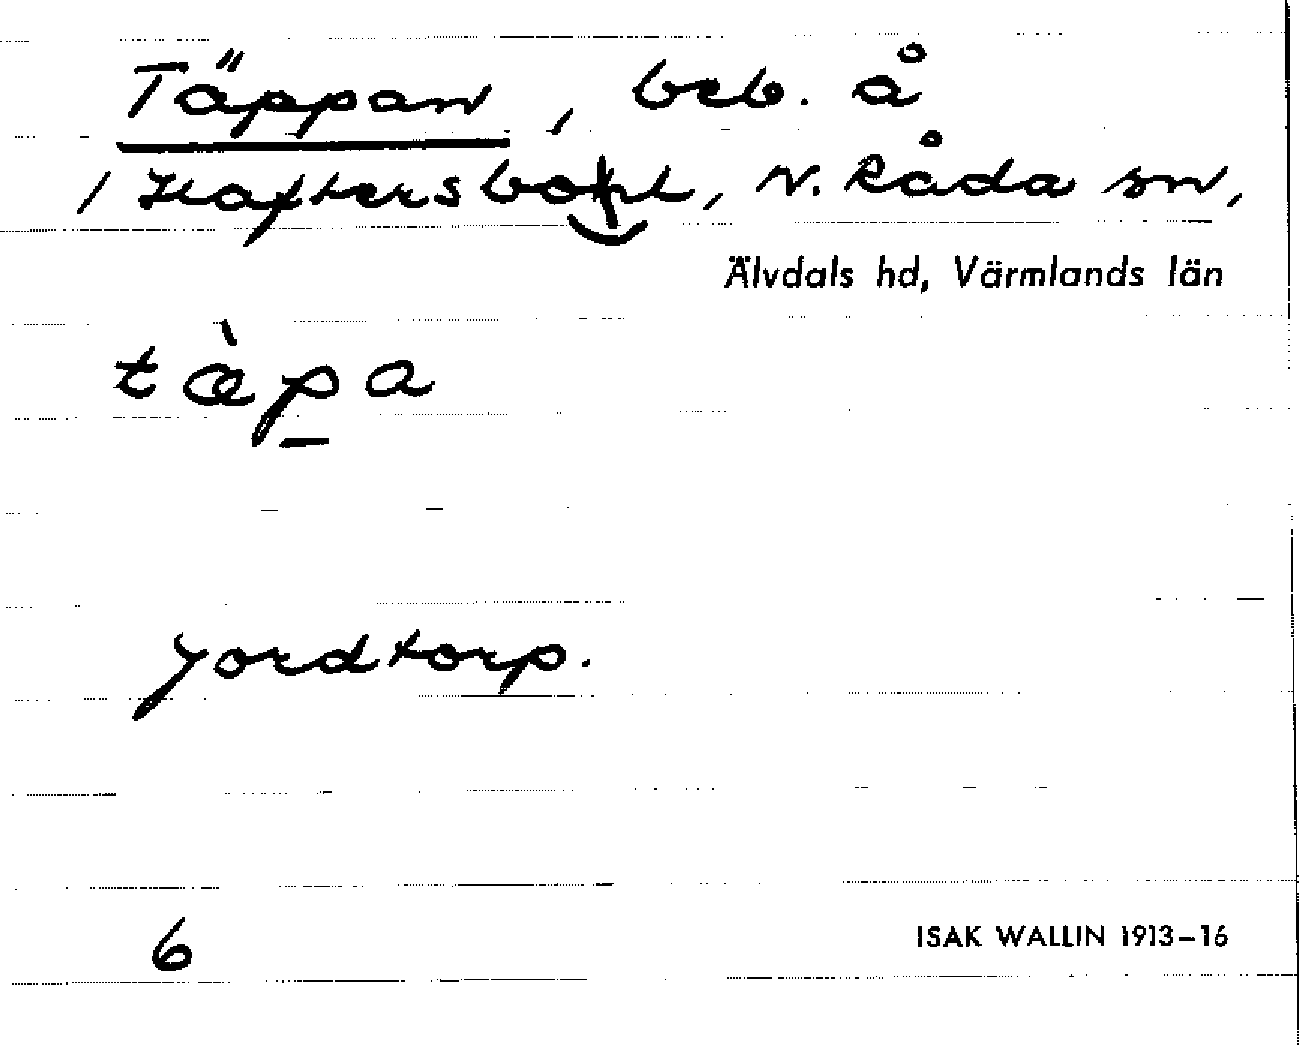 Täppan, beb. å
1 Haftersbohl, N. Råda sn,
Älvdals hd, Värmlands län
tæ̀pa
Jordtorp.
6
ISAK WALLIN 1913–16